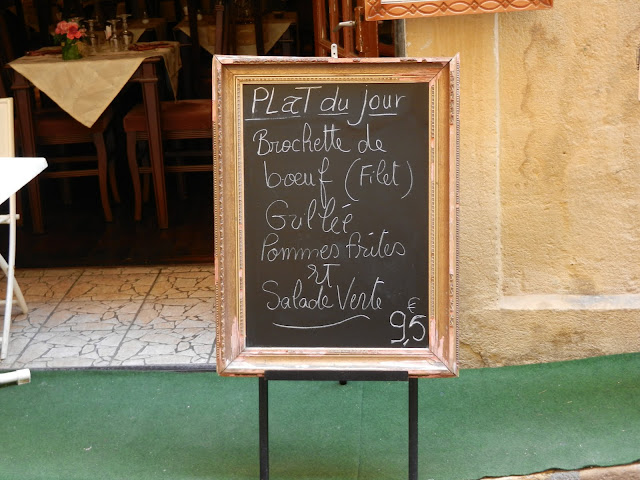 PLaT du jour
Brochette de
boeuf (Filet)
Grillée
Pommes frites
et
Salade Verte
€
9,5